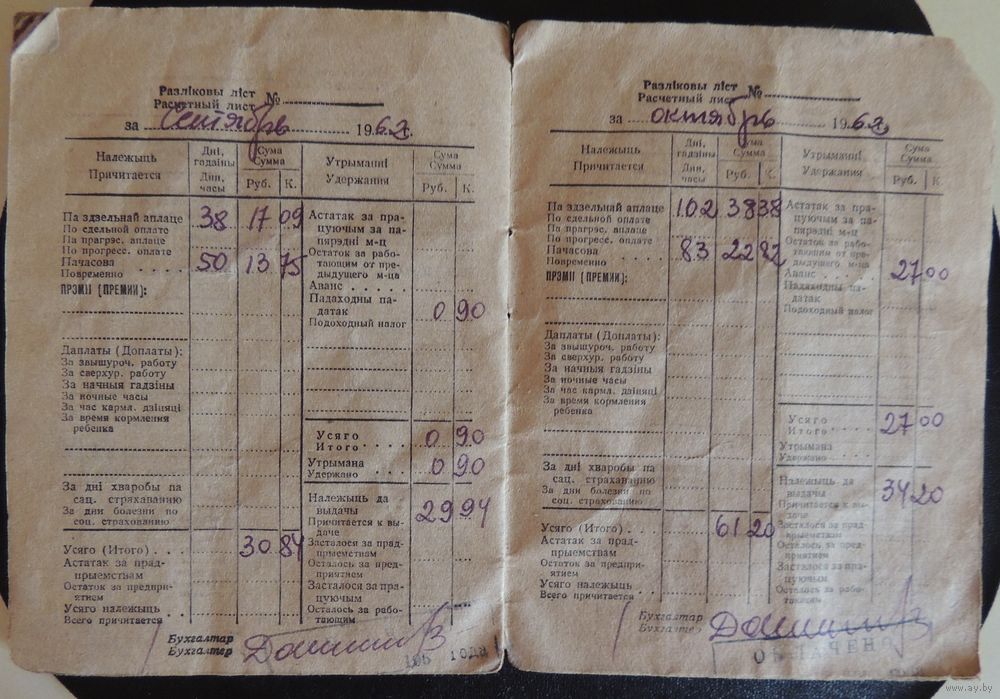 Разліковы ліст
Расчетный лист №
за Сентябрь 1967г.
Належыць
Причитается
Дні,
гадзіны
Дни,
часы
Сума
Сумма
Руб. К.
Утрыманні
Удержания
Сума
Сумма
Руб. К.
Па здзельнай аплаце 38 17 09
По сдельной оплате
Па прагрэс. аплаце
По прогресс. оплате
Пачасова 50 13 75
Повременно
ПРЭМІІ (ПРЕМИИ):
Даплаты (Доплаты):
За звышуроч. работу
За сверхур. работу
За начныя гадзіны
За ночные часы
За час кармл. дзіцяці
За время кормления
ребенка
За дні хваробы па
сац. страхаванню
За дни болезни по
соц. страхованию
Усяго (Итого) 30 84
Астатак за прад-
прыемствам
Остаток за предпри-
ятием
Усяго належыць
Всего причитается
Астатак за пра-
цуючым за па-
пярэдні м-ц
Остаток за рабо-
тающим от пре-
дыдущего м-ца
Аванс
Падаходны па-
датак 0 90
Подоходный налог
Усяго
Итого 0 90
Утрымана
Удержано 0 90
Належыць да
выдачы 29 94
Причитается к вы-
даче
Засталося за прад-
прыемствам
Осталось за пред-
приятием
Засталося за пра-
цуючым
Осталось за рабо-
тающим
Бухгалтар
Бухгалтер
Разліковы ліст
Расчетный лист №
за октябрь 1967г.
Належыць
Причитается
Дні,
гадзіны
Дни,
часы
Сума
Сумма
Руб. К.
Утрыманні
Удержания
Сума
Сумма
Руб. К.
Па здзельнай аплаце 102 38 38
По сдельной оплате
Па прагрэс. аплаце
По прогресс. оплате
Пачасова 83 22 82
Повременно
ПРЭМІІ (ПРЕМИИ):
Даплаты (Доплаты):
За звышуроч. работу
За сверхур. работу
За начныя гадзіны
За ночные часы
За час кармл. дзіцяці
За время кормления
ребенка
За дні хваробы па
сац. страхаванню
За дни болезни по
соц. страхованию
Усяго (Итого) 61 20
Астатак за прад-
прыемствам
Остаток за предпри-
ятием
Усяго належыць
Всего причитается
Астатак за пра-
цуючым за па-
пярэдні м-ц
Остаток за рабо-
тающим от пре-
дыдущего м-ца
Аванс 27 00
Падаходны па-
датак
Подоходный налог
Усяго
Итого 27 00
Утрымана
Удержано
Належыць да
выдачы 34 20
Причитается к вы-
даче
Засталося за прад-
прыемствам
Осталось за пред-
приятием
Засталося за пра-
цуючым
Осталось за рабо-
тающим
Бухгалтар
Бухгалтер
www.ay.by